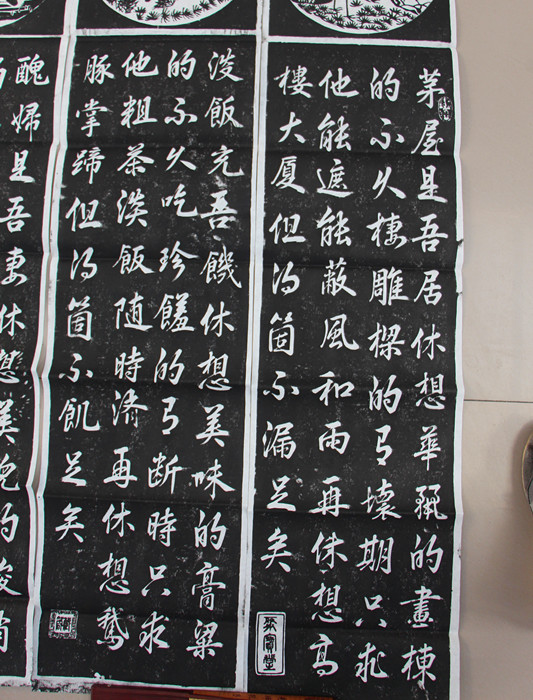 茅屋是吾居休想華麗的畫棟
的不久棲雕樑的有壞期只求
他能遮能蔽風和雨再休想高
樓大厦但得箇不漏足矣
淡飯充吾饑休想美味的膏粱
的不久吃珍饈的有斷時只求
他粗茶淡飯随時濟再休想鵝
豚掌蹄但得箇不飢足矣
醜婦是吾妻休想美貌的俊俏